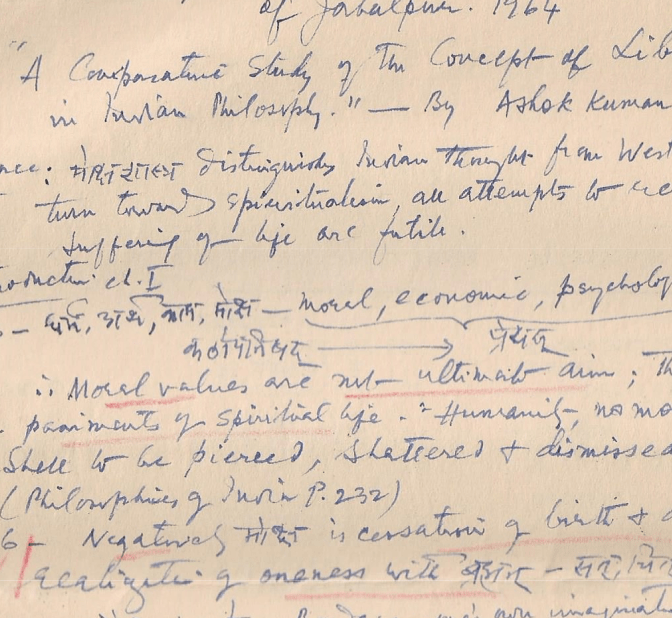 of Jabalpur. 1964
"A Comparative Study of The Concept of Lib
in Indian Philosophy." — By Ashok Kuman
nce: मोक्षशास्त्र distinguishes Indian thought from West
turn towards spiritualism, all attempts to
suffering of life are futile.
roduction ch. I
– धर्म, अर्थ, काम, मोक्ष — moral, economic, psycholog
कठोपनिषद् → प्रेयस्
∴ Moral values are not ultimate aim; th
paniments of spiritual life. "Humanity, no mo
Shell to be pierced, shattered & dismissed
(Philosophies of India P. 232)
6 – Negatively मोक्ष is cessation of birth & d
realization of oneness with ब्रह्मन् – सत्, चि